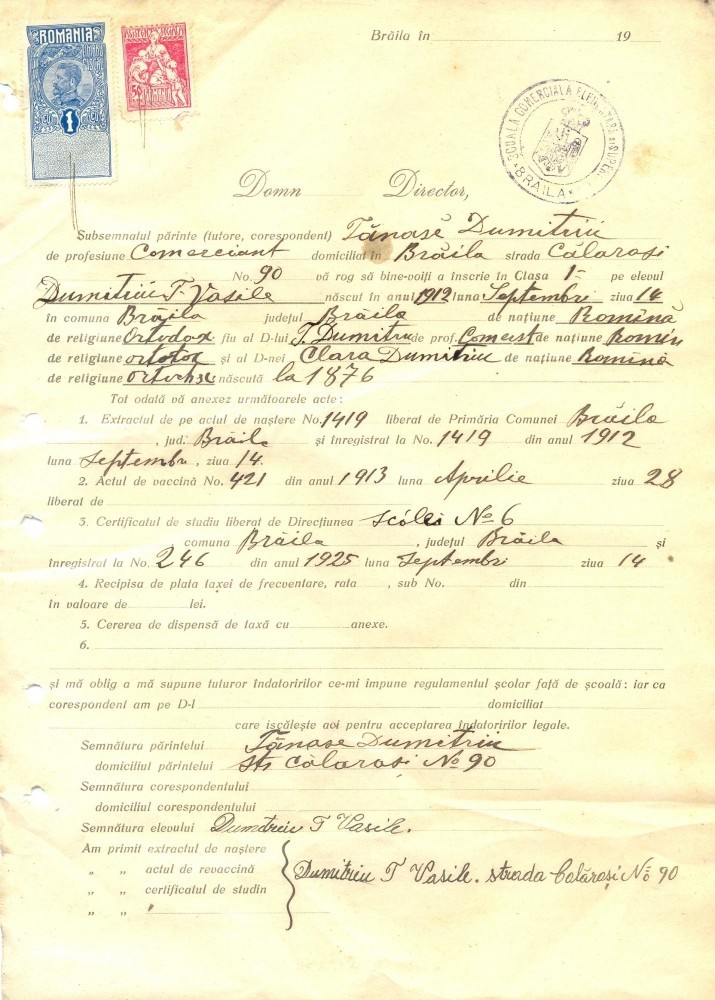 Brăila în 19
ROMÂNIA
TIMBRU FISCAL
1
ASISTENȚA SOCIALĂ
50
ROMANIA
ȘCOALA COMERCIALĂ ELEMENTARĂ și SUPER.
BRĂILA
Domn Director,
Subsemnatul părinte (tutore, corespondent) Tănase Dumitriu
de profesiune Comerciant domiciliat în Brăila strada Călarași
No. 90 vă rog să bine-voiți a înscrie în Clasa I- pe elevul
Dumitriu T. Vasile născut în anul 1912 luna Septembri ziua 14
în comuna Brăila județul Brăila de națiune Romînă
de religiune Ortodox fiu al D-lui T. Dumitriu de prof. Comerst de națiune Romîn
de religiune ortotox și al D-nei Clara Dumitriu de națiune Romînă
de religiune născută la 1876
Tot odată vă anexez următoarele acte :
1. Extractul de pe actul de naștere No. 1419 liberat de Primăria Comunei Brăila
, jud. Brăila și înregistrat la No. 1419 din anul 1912
luna Septembr , ziua 14.
2. Actul de vaccină No. 421 din anul 1913 luna Aprilie ziua 28
liberat de
3. Certificatul de studiu liberat de Direcțiunea Scólei No 6
, comuna Brăila , județul Brăila și
înregistrat la No. 246 din anul 1925 luna Septembri ziua 14
4. Recipisa de plata taxei de frecventare, rata , sub No. din
în valoare de lei.
5. Cererea de dispensă de taxă cu anexe.
6.
și mă oblig a mă supune tuturor îndatoririlor ce-mi impune regulamentul școlar față de școală : iar ca
corespondent am pe D-l domiciliat
care iscălește aoi pentru acceptarea îndatoririlor legale.
Semnătura părintelui Tănase Dumitriu
domiciliul părintelui Str Călarași No 90
Semnătura corespondentului
domiciliul corespondentului
Semnătura elevului Dumitriu T Vasile.
Am primit extractul de naștere
„ „ actul de revaccină Dumitriu T Vasile. strada Călărași No 90
„ „ certificatul de studin
„ „